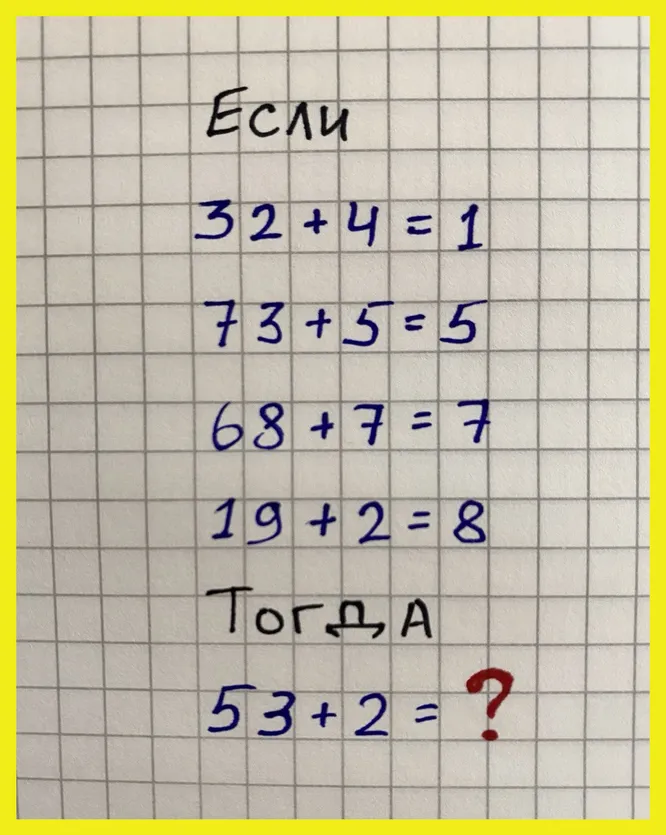 Если
32 + 4 = 1
73 + 5 = 5
68 + 7 = 7
19 + 2 = 8
Тогда
53 + 2 = ?